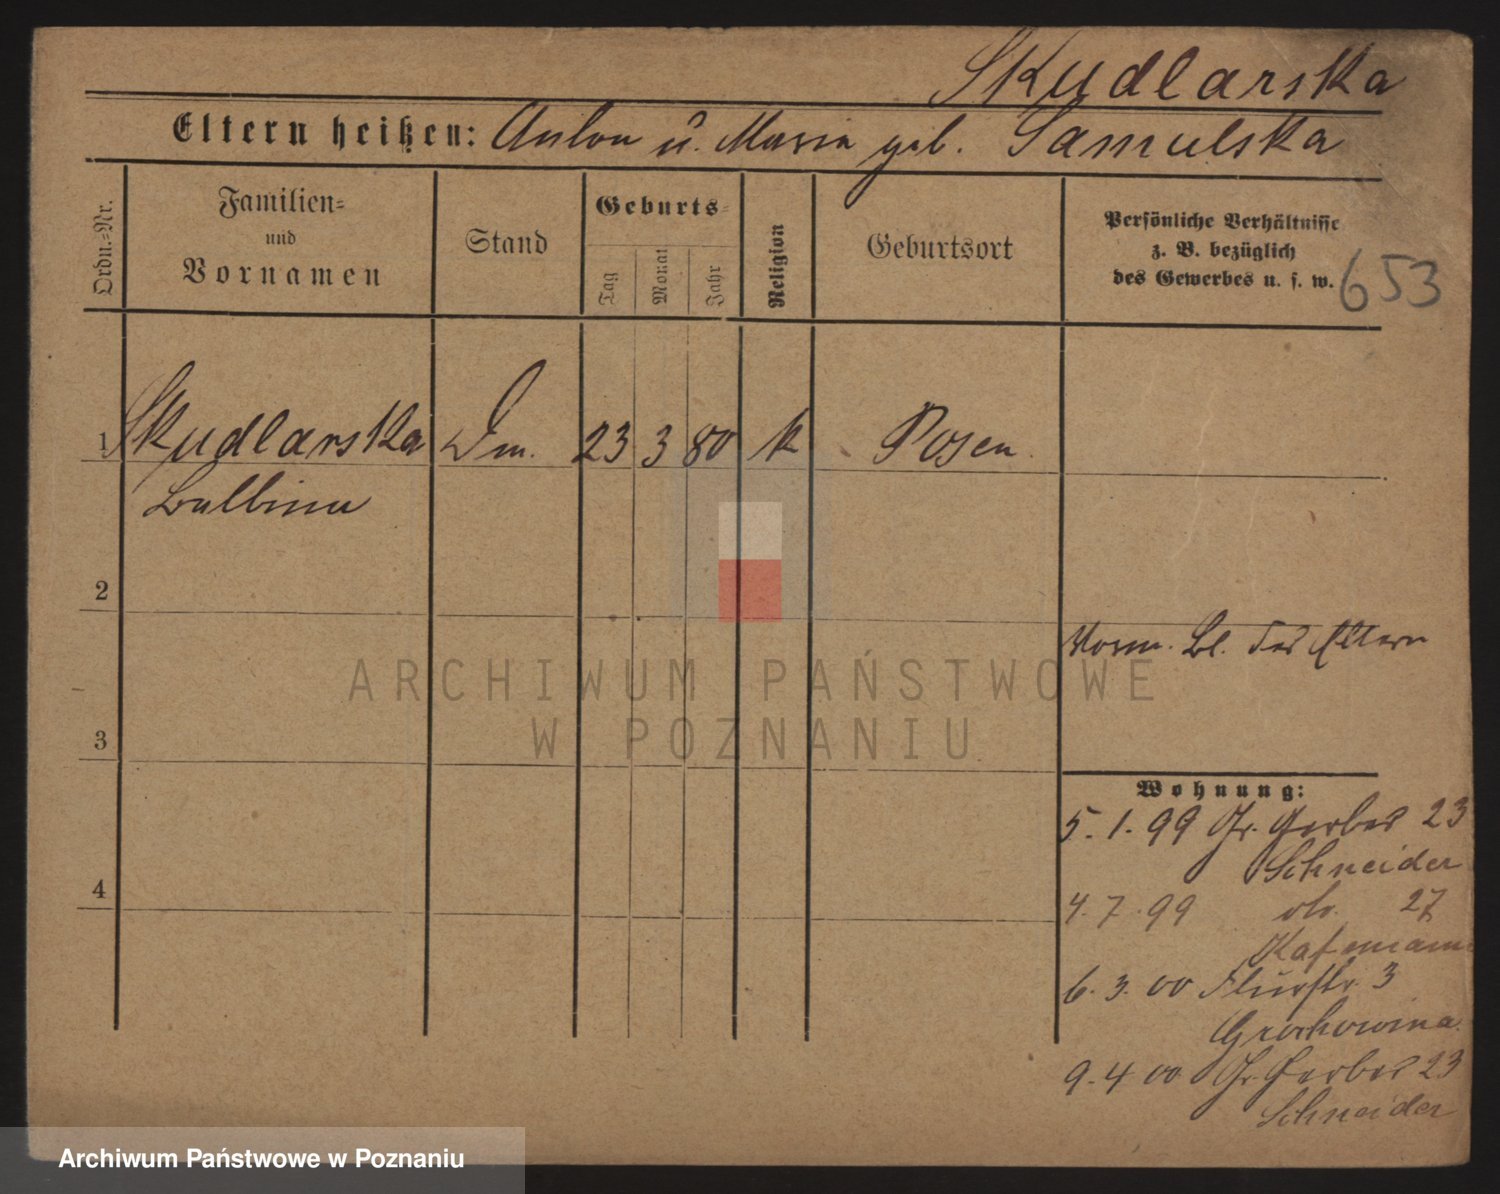 Skudlarska
Eltern heißen: Anton u. Maria geb. Samulska
Ordn.=Nr.
Familien=
und
Vornamen
Stand
Geburts=
Tag
Monat
Jahr
Religion
Geburtsort
Persönliche Verhältnisse
z. B. bezüglich
des Gewerbes u. s. w.
653
1 Skudlarska Dm. 23 3 80 k Posen
Balbina
2
Vorm. Bl. des Eltern
3
Wohnung:
5.1.99 Gr. Gerber 23
Schneider
4
4.7.99 do. 27
Kafemann
6.3.00 Flurstr. 3
Grochowina
9.4 00 Gr. Gerber 23
Schneider
ARCHIWUM PAŃSTWOWE
W POZNANIU
Archiwum Państwowe w Poznaniu